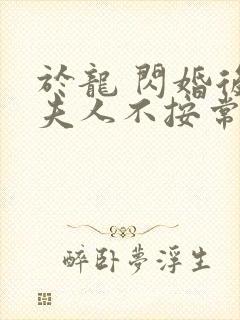 於龍 閃婚後
夫人不按常
醉卧夢浮生